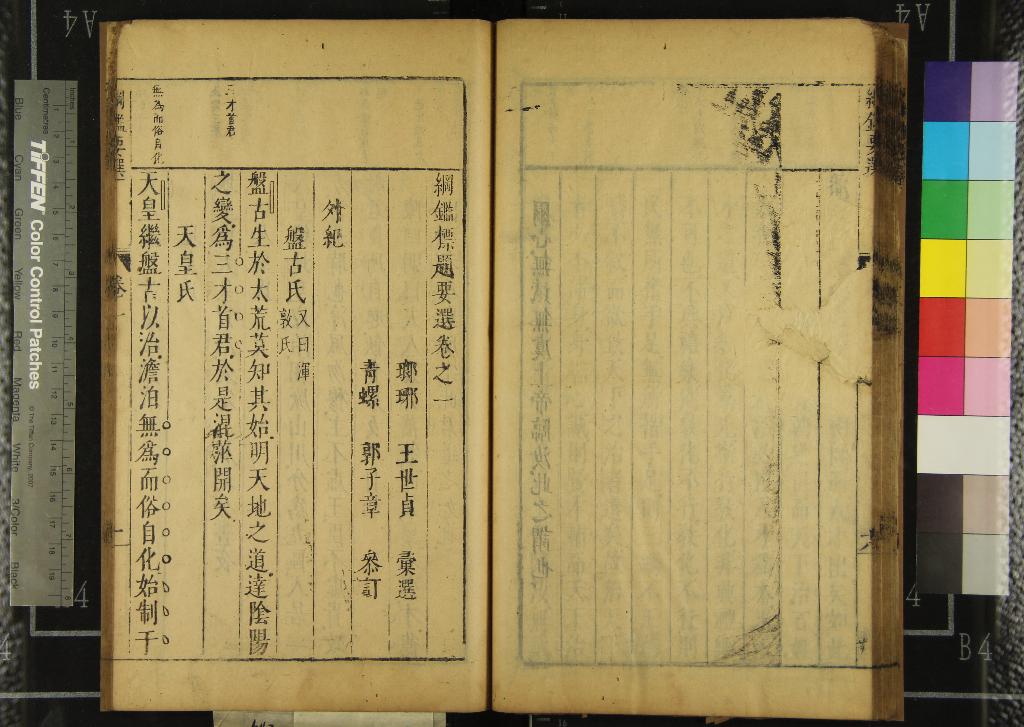 綱鑑標題要選卷之一
瑯琊 王世貞 彙選
青螺 郭子章 叅訂
外紀
盤古氏 又曰渾敦氏
盤古生於太荒莫知其始明天地之道達陰陽
之變爲三才首君於是混茫開矣
天皇氏
天皇繼盤古以治澹泊無爲而俗自化始制干
三才首君
無為而俗自化
卷一
一
TIFFEN Color Control Patches
© The Tiffen Company, 2007
Centimetres
Inches
Blue
Cyan
Green
Yellow
Red
Magenta
White
3/Color
Black
A4
A4
B4